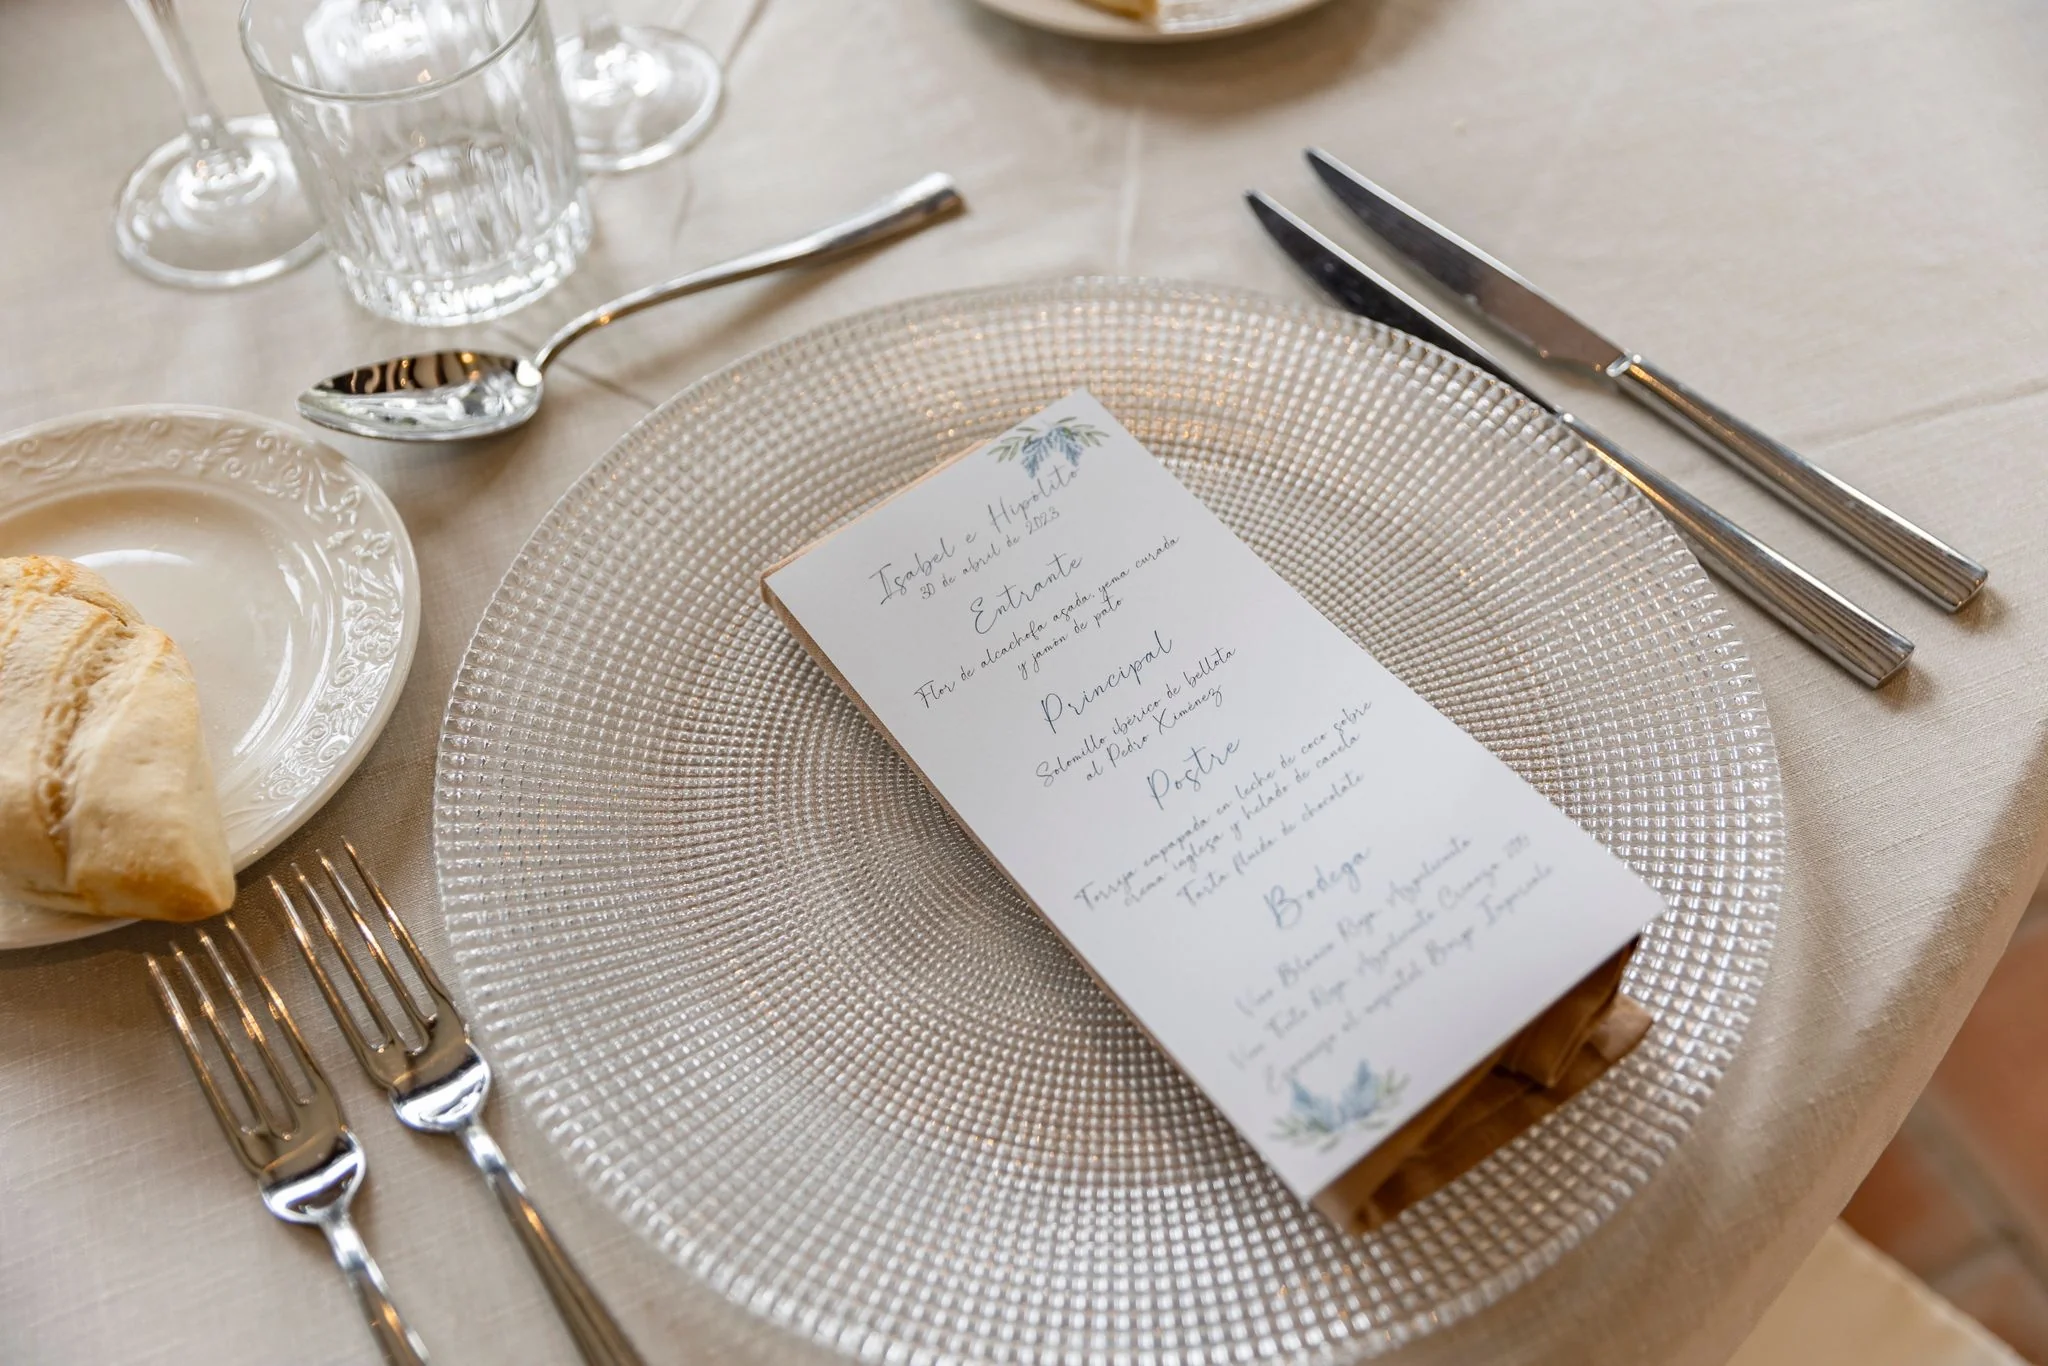 Isabel e Hipólito
30 de abril de 2023
Entrante
Flor de alcachofa asada, yema curada
y jamón de pato
Principal
Solomillo ibérico de bellota
al Pedro Ximénez
Postre
Torrija empapada en leche de coco sobre
crema inglesa y helado de canela
Tarta fluida de chocolate
Bodega
Vino Blanco Rioja Azpilicueta
Vino Tinto Rioja Azpilicueta Crianza